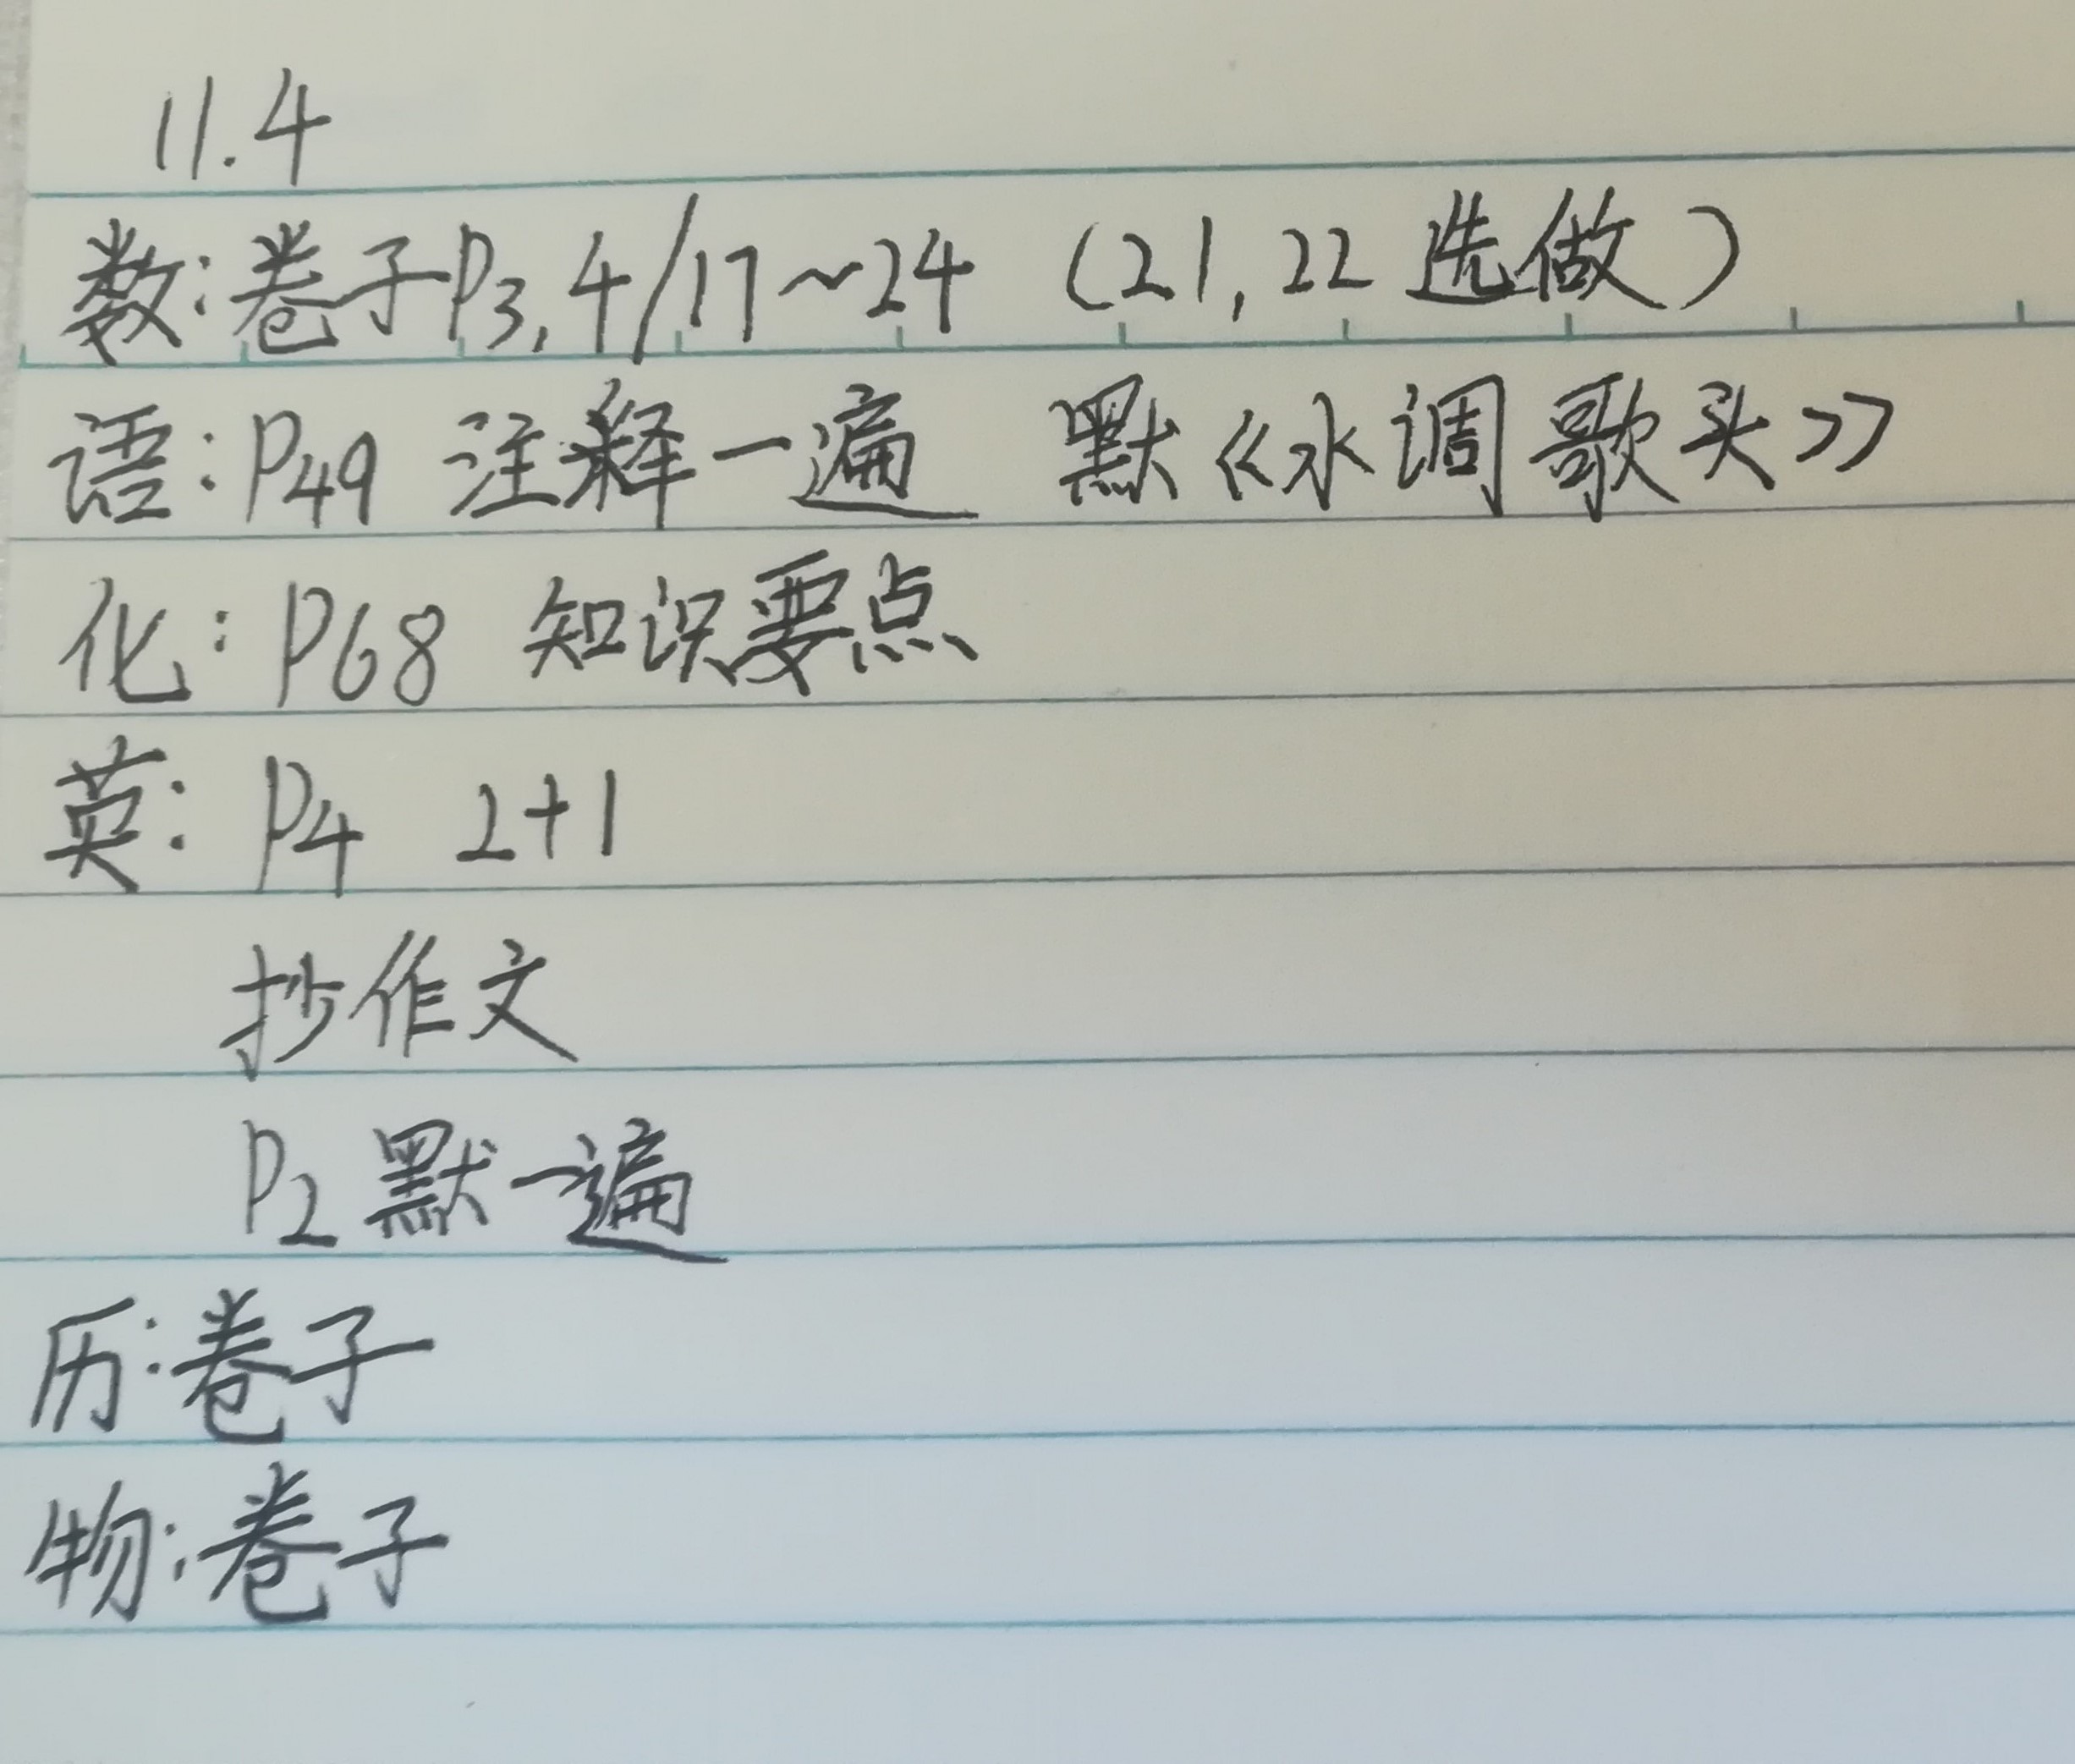 11.4
数:卷子P3,4/17~24 (21,22选做)
语:P49 注释一遍 默《水调歌头》
化:P68 知识要点
英:P4 2+1
抄作文
P2默一遍
历:卷子
物:卷子